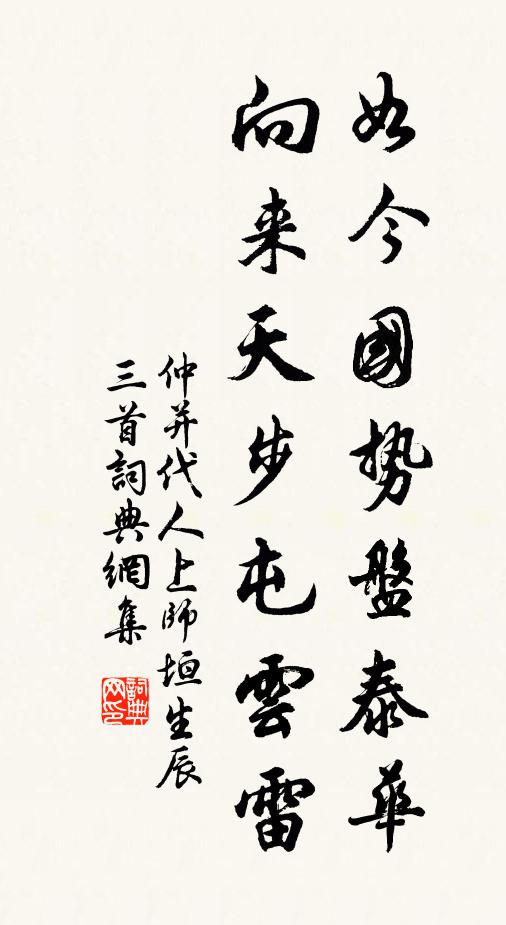 如今國势盤泰華
向来天步屯雲雷
仲并代人上師垣生辰
三首詞典網集
詞典网印